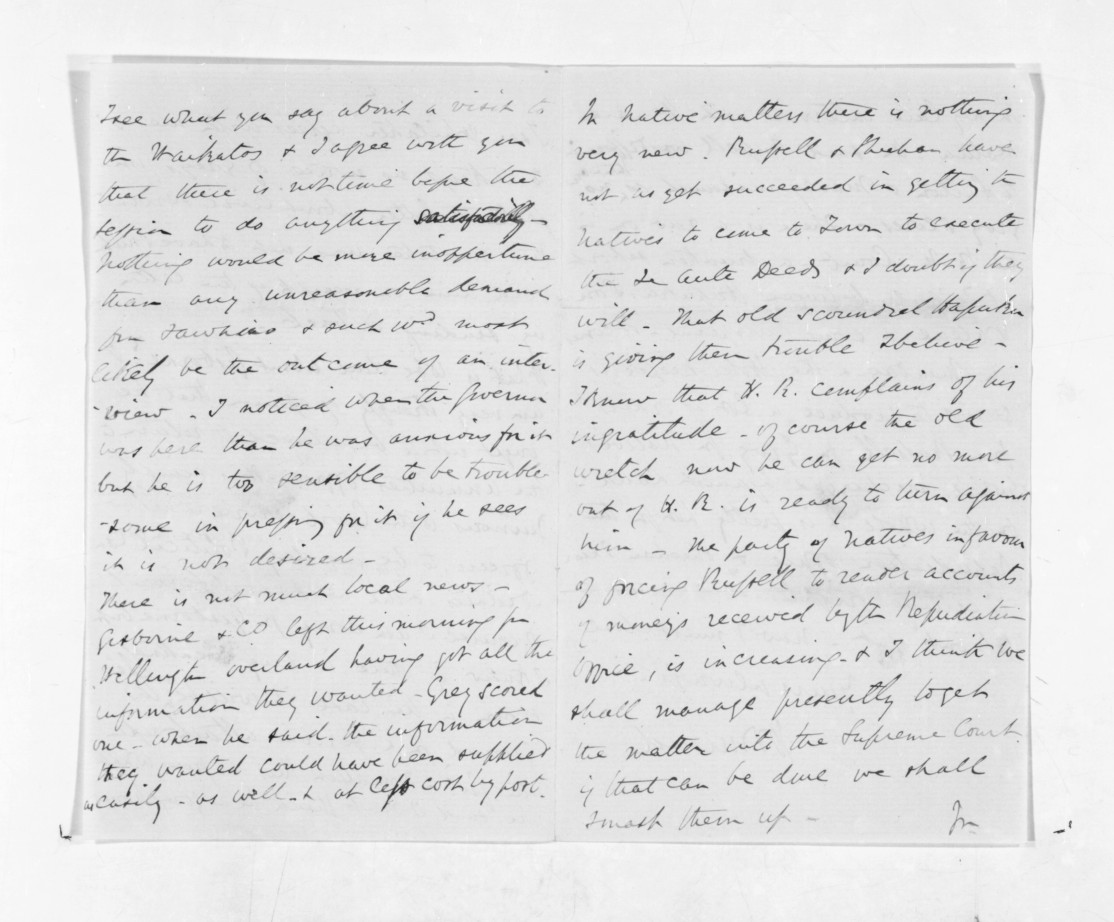 I see what you say about a visit to
the Waikatos & I agree with you
that there is not time before the
session to do anything satisfactorily -
Nothing would be more inopportune
than any unreasonable demand
from Tawhiao & such wd most
likely be the outcome of an inter-
-view - I noticed when the Governor
was here than he was anxious for it
but he is too sensible to be trouble-
-some in pressing for it if he sees
it is not desired -
There is not much local news -
Gisborne & Co left this morning for
Wellington overland having got all the
information they wanted - Grey scored
one - when he said - the information
they wanted could have been supplied
as easily - as well - & at less cost by post.
In Native matters there is nothing
very new. Russell & Sheehan have
not as yet succeeded in getting to
Natives to come to Town to execute
the Te Aute Deeds & I doubt if they
will - That old scoundrel Hapuku
is giving them trouble I believe -
I know that H. R. complains of his
ingratitude - of course the old
wretch now he can get no more
out of H. R. is ready to turn against
him - The party of Natives in favour
of forcing Russell to render accounts
of moneys received by the Repudiation
Office, is increasing - & I think we
shall manage presently to get
the matter into the Supreme Court.
if that can be done we shall
smash them up -